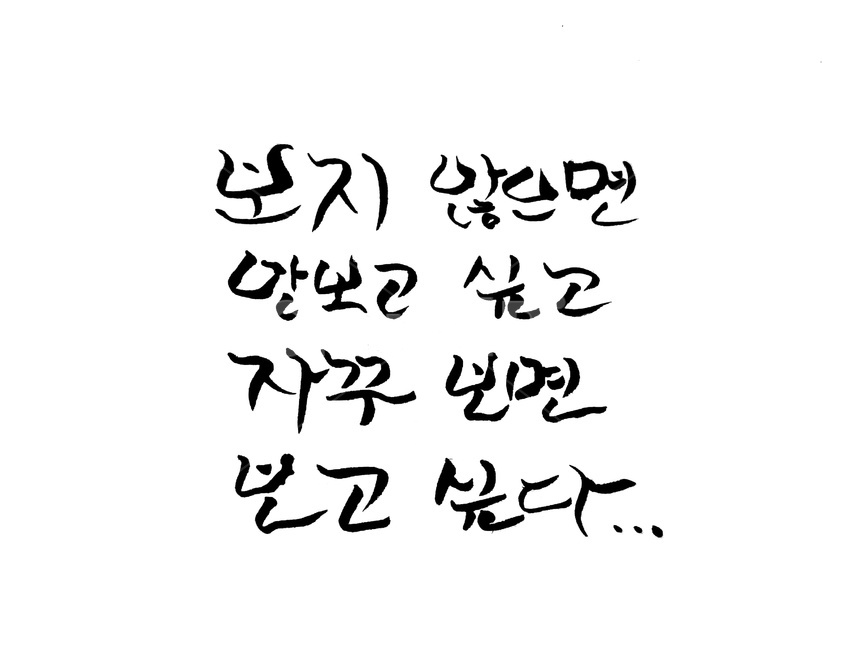 보지 않으면
안보고 싶고
자꾸 보면
보고 싶다...